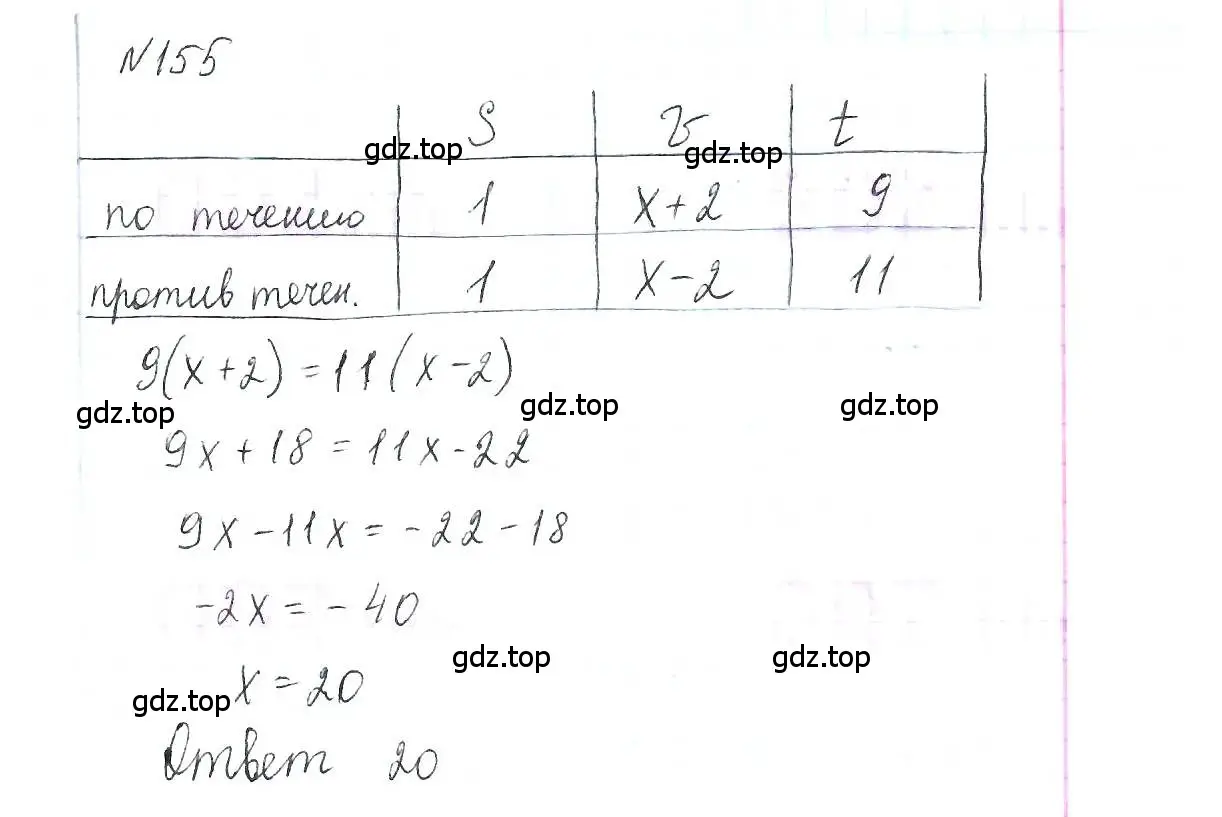 N155
S v t
gdz.top gdz.top
по течению 1 x+2 9
против течен. 1 x-2 11
9(x+2)=11(x-2)
gdz.top gdz.top gdz.top
9x+18=11x-22
9x-11x=-22-18
-2x=-40
gdz.top gdz.top
gdz.top x=20
Ответ 20